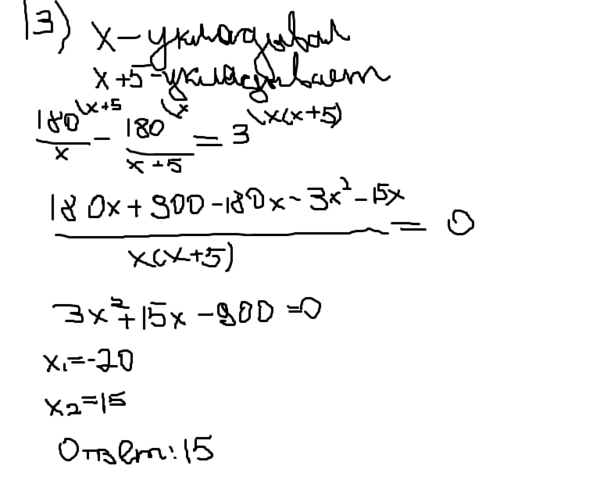 13) x - укладывал
x+5 - укладывает
180\x+5 / x - 180\x / x+5 = 3\x(x+5)
180x + 900 - 180x - 3x² - 15x / x(x+5) = 0
3x² + 15x - 900 = 0
x₁ = -20
x₂ = 15
Ответ: 15